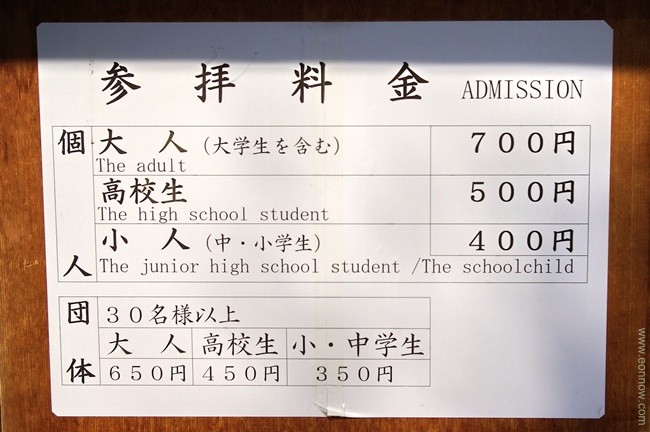 参拝料金 ADMISSION
個人
大　人（大学生を含む） ７００円
The adult
高校生 ５００円
The high school student
小　人（中・小学生） ４００円
The junior high school student /The schoolchild
団体
３０名様以上
大　人 高校生 小・中学生
６５０円 ４５０円 ３５０円
www.eonnow.com